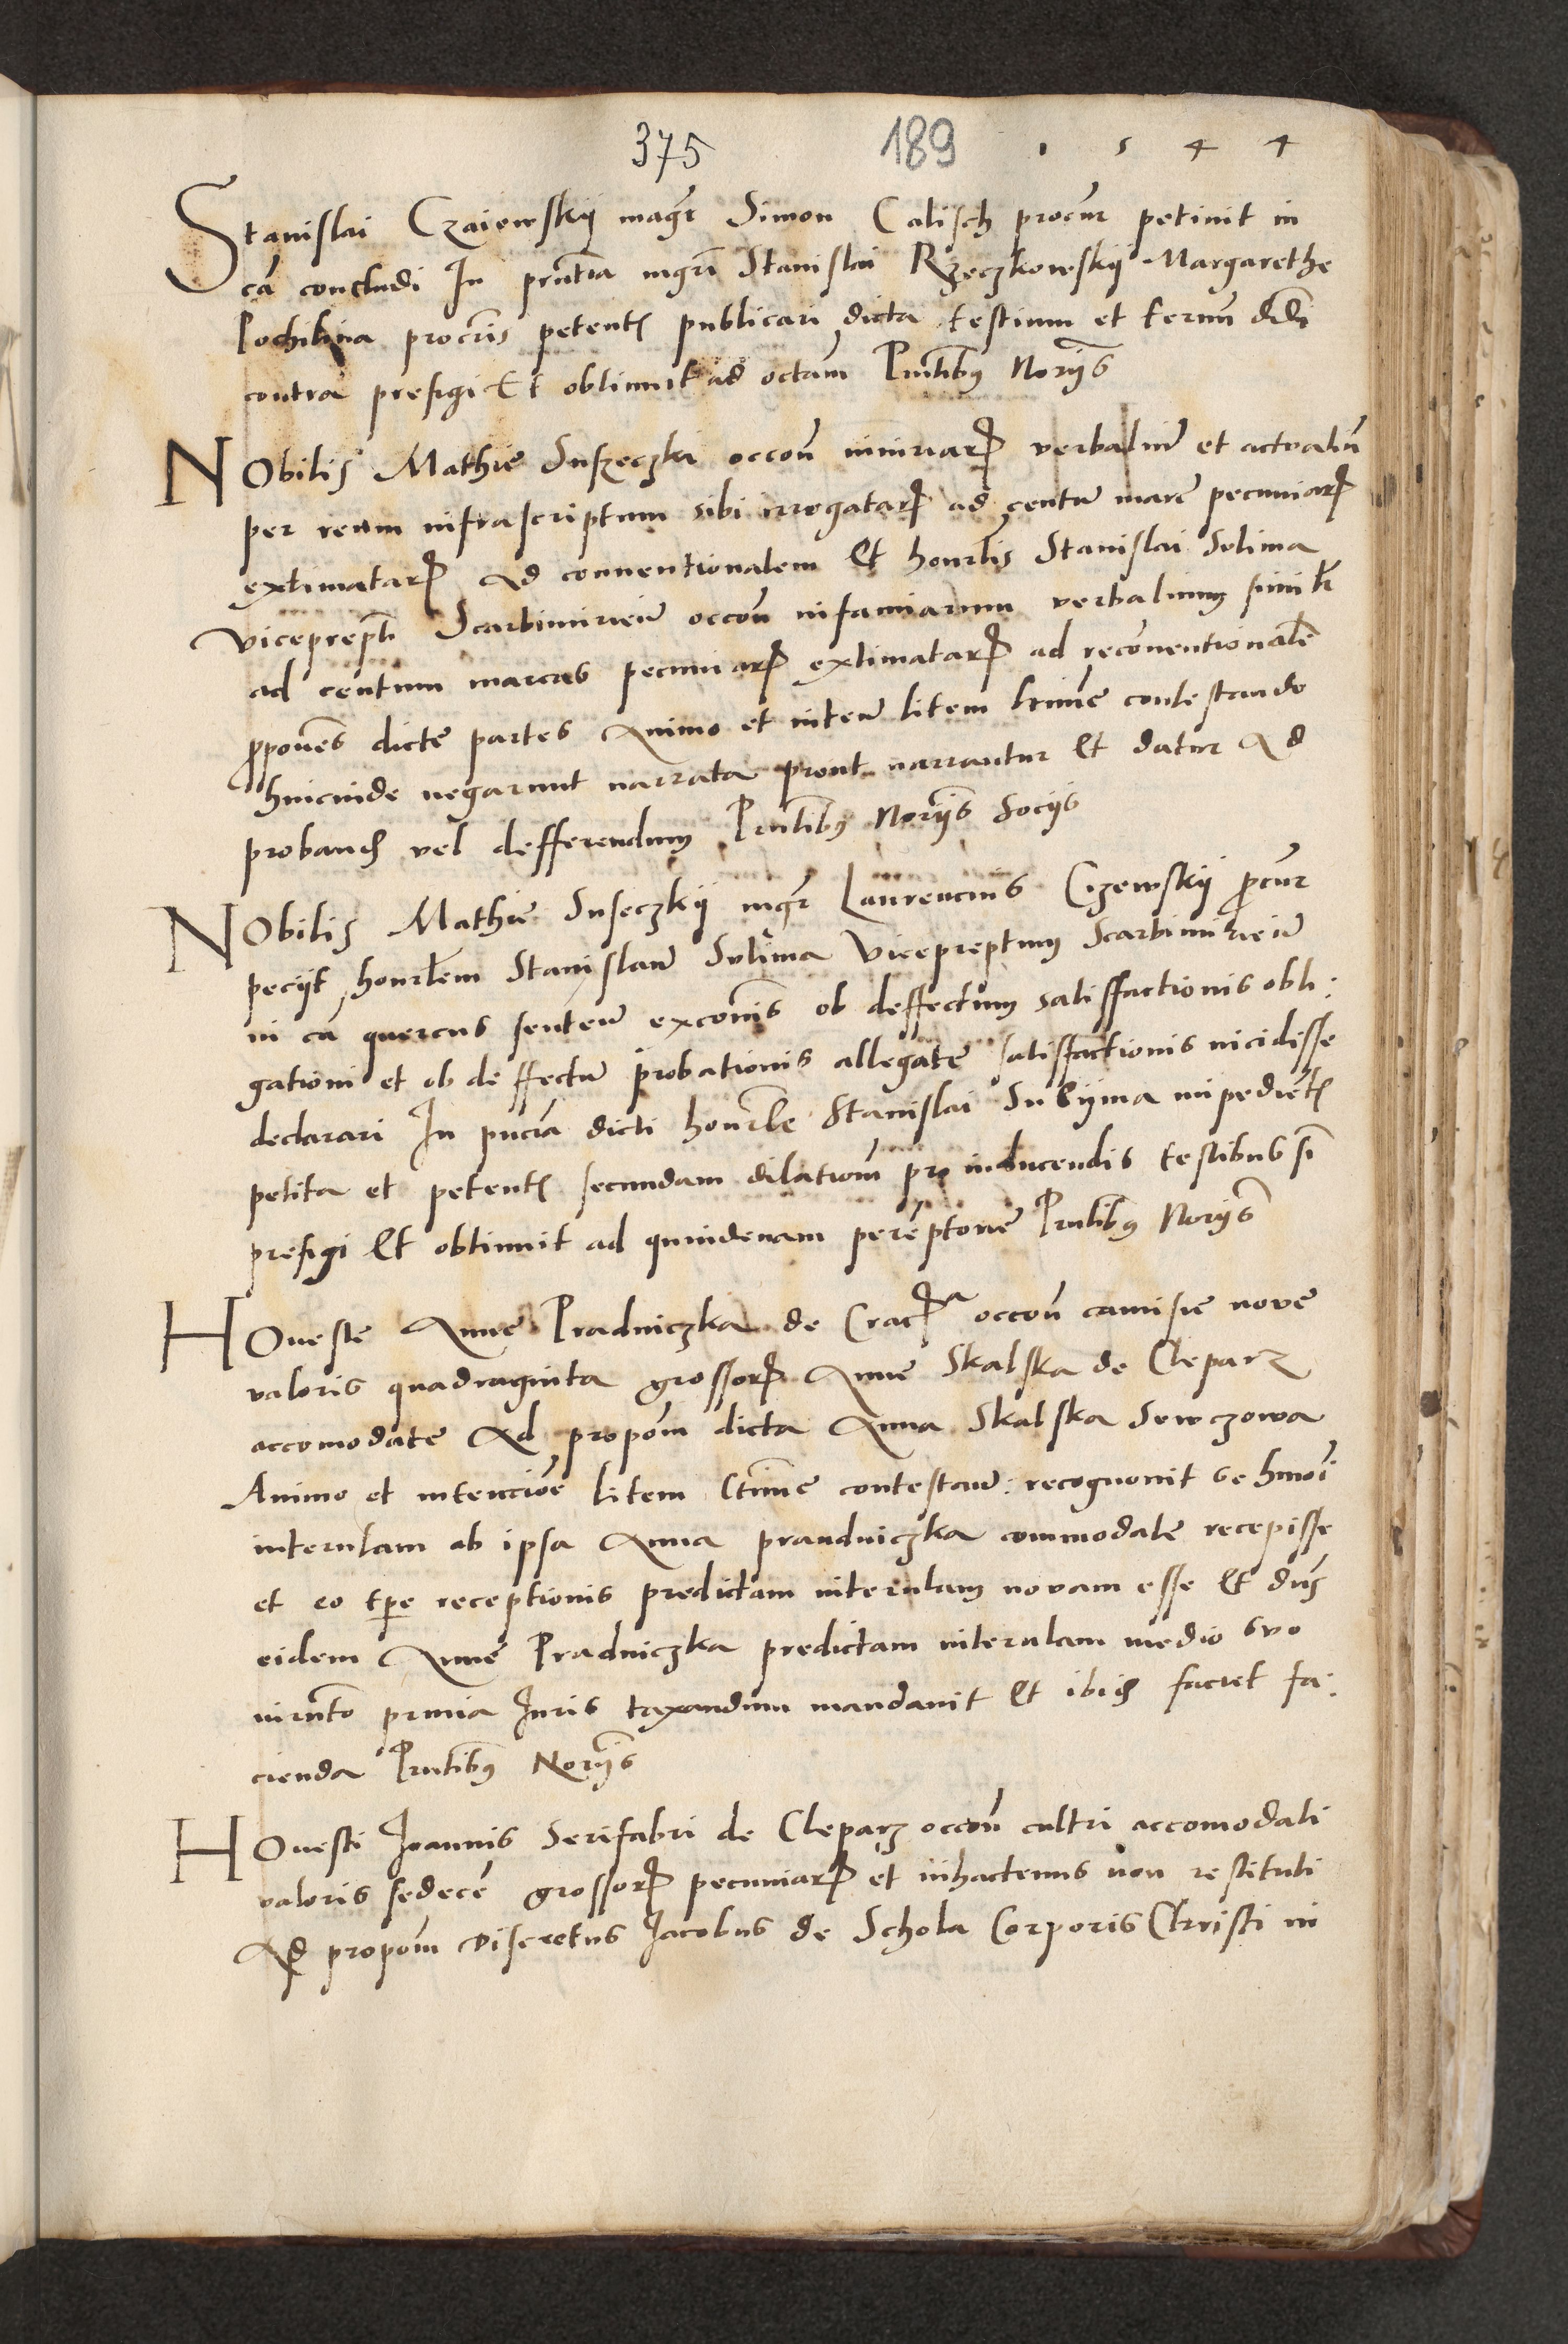 375 189 1 5 4 4
Stanislai Czaiewskij magr Simon Calisch procur petiuit in
ca concludi In pntia mgri Stanislai Rzeczkowskij Margarethe
procris petent publicari dicta testium et termu ddi
contra prefigi Et obtinuit ad octam Pntibus Norijs
NObilis Mathie Suszeczki occon iniuriar verbaliu et actualiu
per reum infrascriptum sibi irrogatar ad centu marc pecuniar
extimatar ad conuentionalem Et honrlis Stanislai Solima
viceprepti Scarbimirien occon infamiarum verbalium simitr
ad centum marcas pecuniar extimatar ad reconuentionale
ppones dicte partes Animo et inten litem ltime contestando
hincinde negarunt narrata prout narrantur Et datur ad
proband vel defferendum Pntibus Norijs Socijs
NObilis Mathie Suseczkij mgr Laurencius Cizewskij pcur
pecijt honrlem Stanislau Solima viceprepturn Scarbimirien
in ca quercus senten exconis ob deffectum satisffactionis obli:
gationi et ob deffectu probationis allegate satisffactionis incidisse
declarari In pncia dicti honrle Stanislai Sulijma impedient
petita et petent secundam dilationm pro inducendis testibus si
prefigi Et obtinuit ad quindenam pereptorie Pntibus Norijs
HOneste Anne Pradniczka de Crac occon camisie noue
valoris quadraginta grossor Anne Skalska de Cleparz
accomodate Ad propom dicta Anna Skalska Sewczowa
Animo et intencioe litem ltime contestan: recognouit se hmoi
interulam ab ipsa Anna prandniczka commodate recepisse
et eo tpe receptionis predictam interulam nouam esse Et dns
eidem Anne Pradniczka predictam interulam medio suo
iurnto premia Iuris taxandum mandauit Et ibid faciet fa:
cienda Pntibus Norijs
HOnesti Joannis Serifabri de Cleparz occon cultri accomodati
valoris sedece grossor pecuniar et inhactenus non restituti
Ad propom Discretus Jacobus de Schola Corporis Christi in